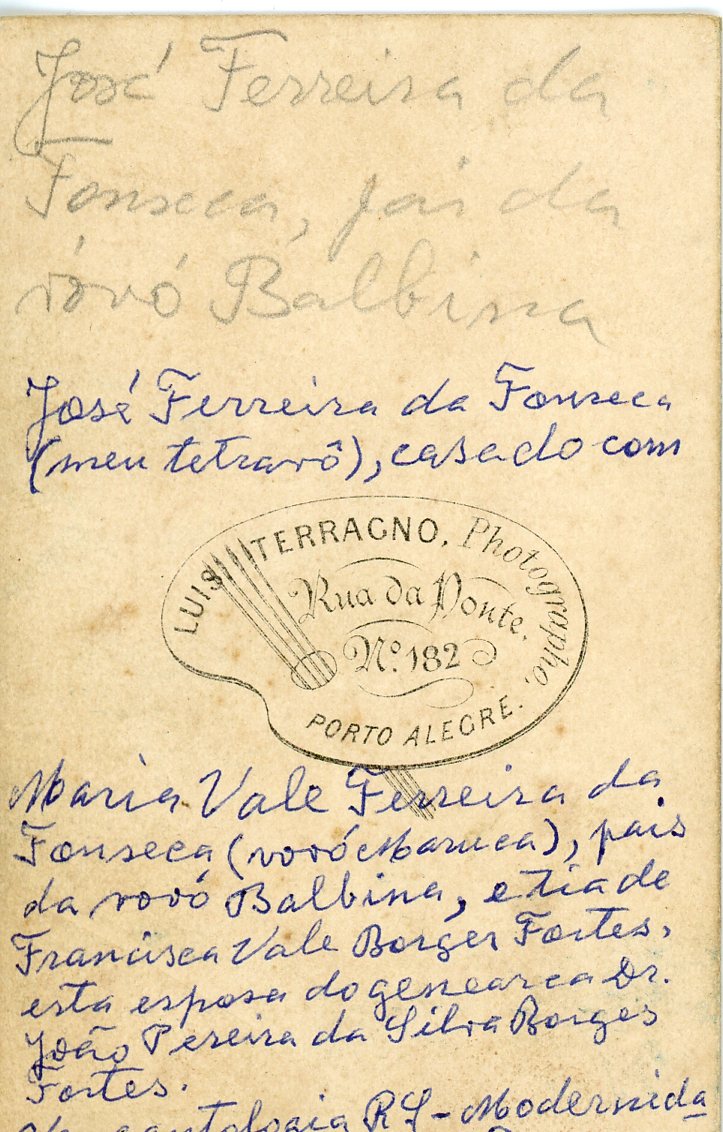 José Ferreira da
Fonseca, pai da
vóvó Balbina
José Ferreira da Fonseca
(meu tetravô), casado com
LUIS TERRAGNO, Photographo,
Rua da Ponte,
Nº 182
PORTO ALEGRE.
Maria Vale Ferreira da
Fonseca (vovó Maruca), pais
da vovó Balbina, e tia de
Francisca Vale Borges Fortes,
esta esposa do genearca Dr.
João Pereira da Silva Borges
Fortes.
antologia RS - Modernida